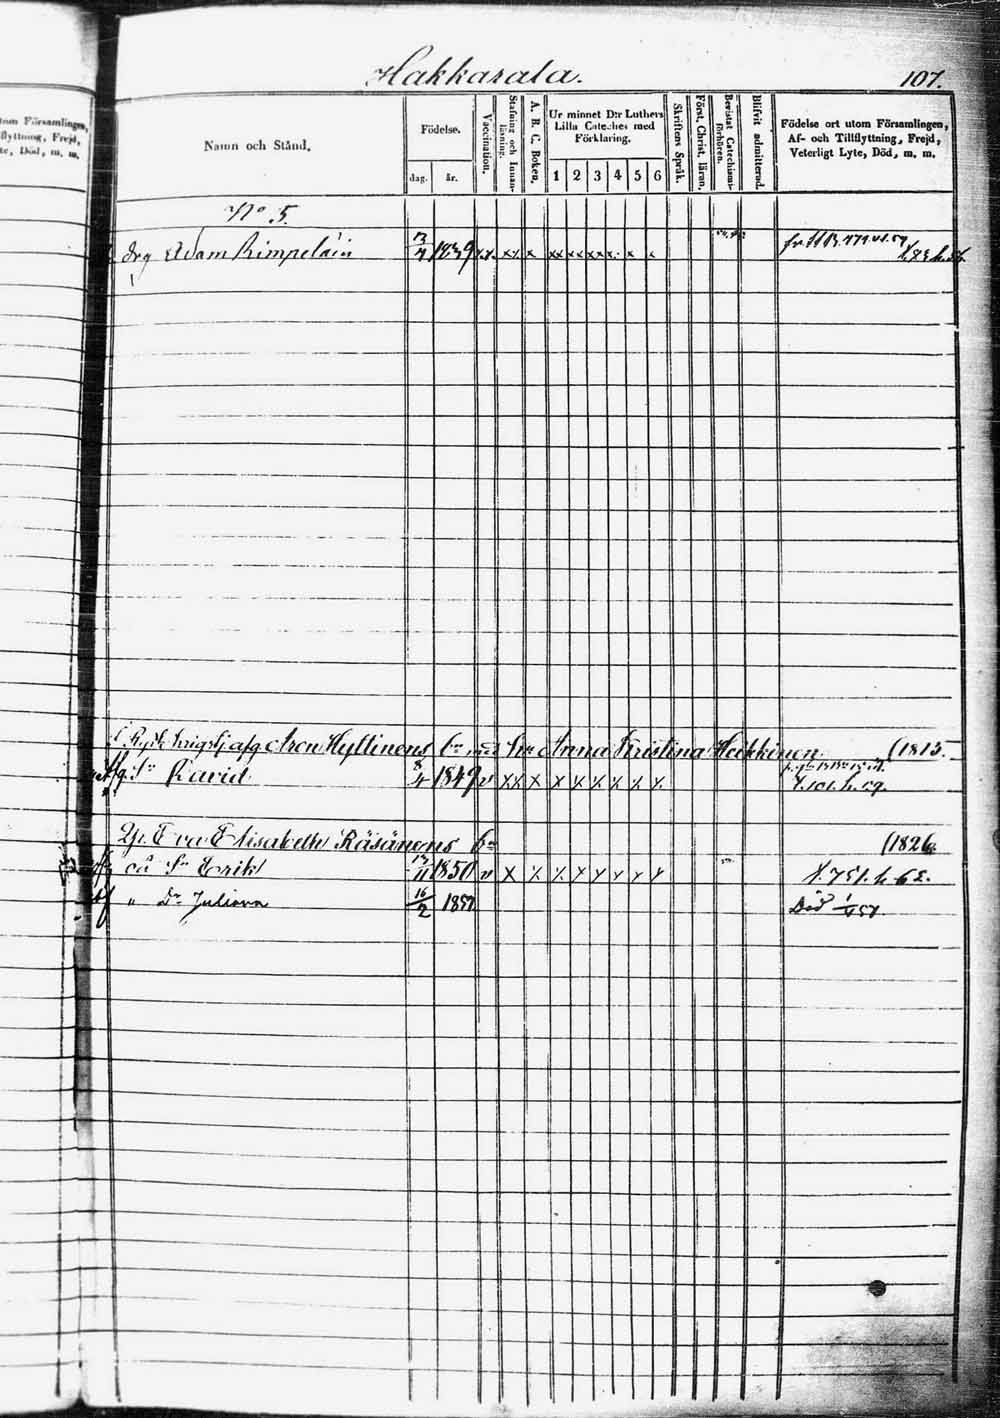 Hakkarala.
107.
tom Församlingen,
flyttning, Frejd,
te, Död, m. m.
Namn och Stånd.
Födelse.
dag.
år.
Vaccination.
Stafning och Innan-
läsning.
A. B. C. Boken.
Ur minnet D:r Luthers
Lilla Cateches med
Förklaring.
1 2 3 4 5 6
Skriftens Språk.
Först. Christ. läran.
Bevistat Catechismi-
förhören.
Blifvit admitterad.
Födelse ort utom Församlingen,
Af- och Tillflyttning, Frejd,
Veterligt Lyte, Död, m. m.
No 5.
drg Adam Rimpeläin 1839 x x x x x
afg Aron Hyttinens bn med hu Anna Kristina Heikkinen (1813.
Sn David 8/4 1849 v x x x x x x x x x
Eva Elisabeth Räsänens bn (1826
oä Sn Erik 1850 v x x x x x x x x f. 751. h. 62.
" Dr Juliana 16/2 1857 Död